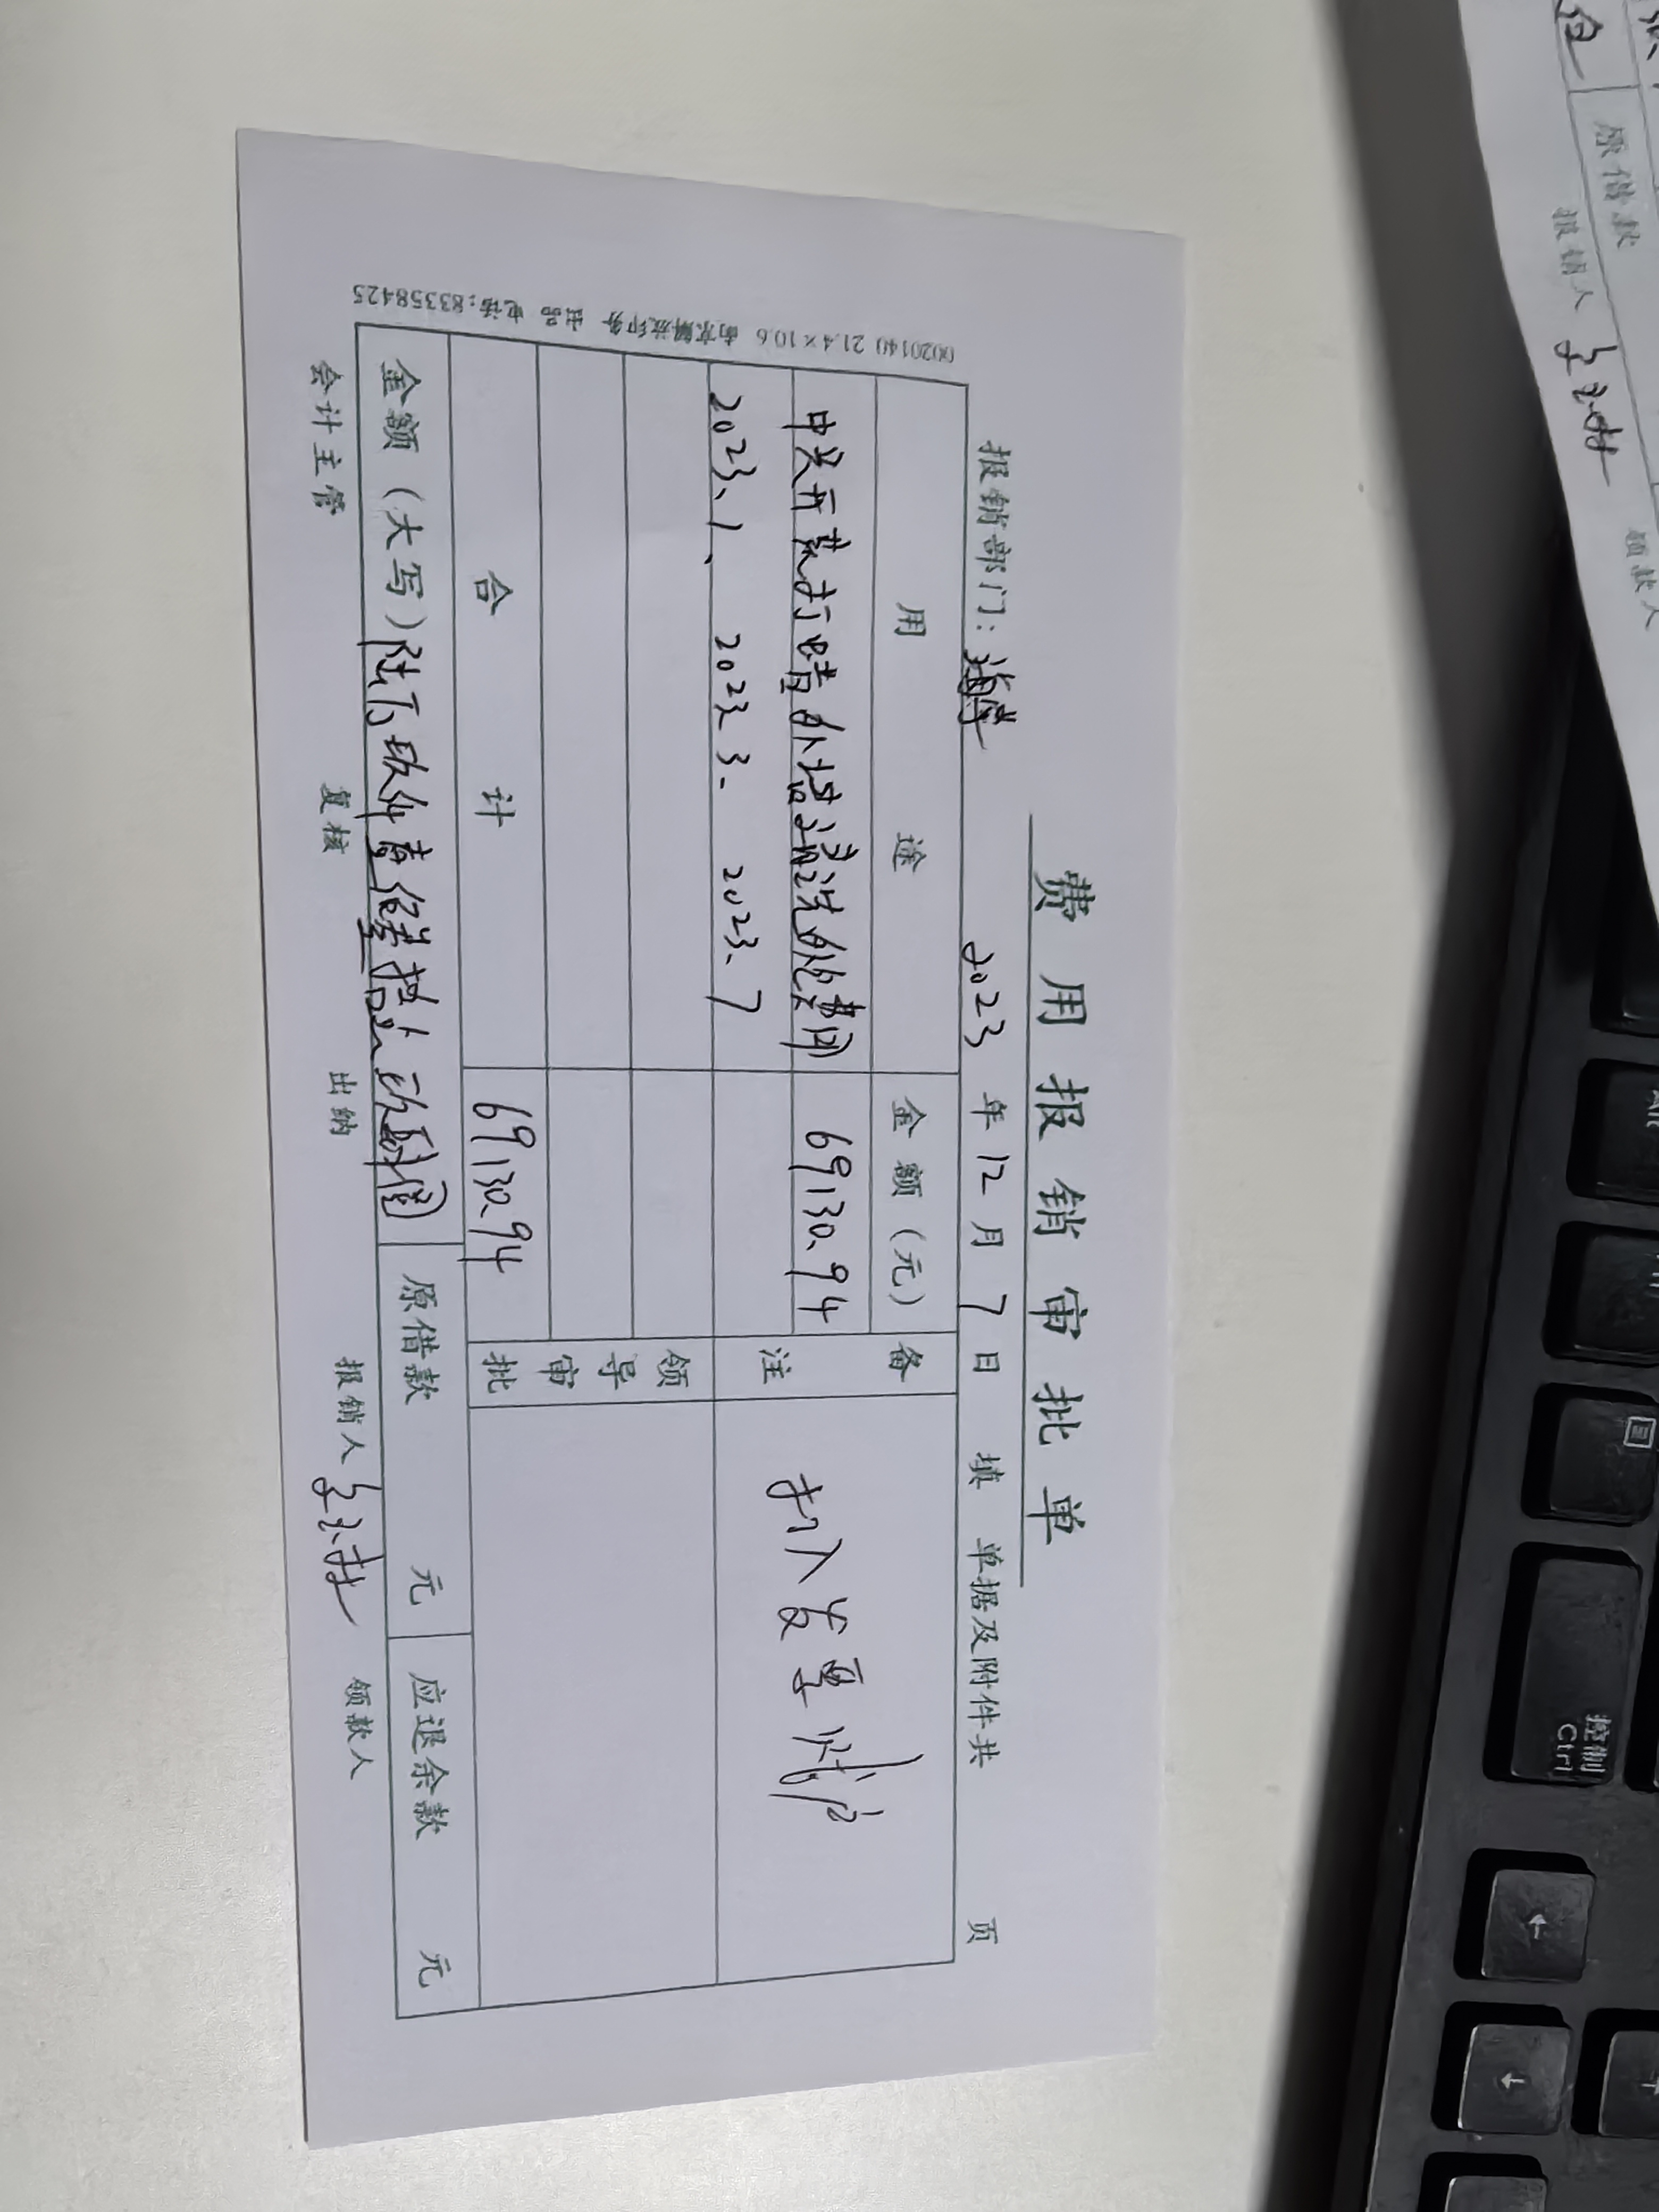 费用报销审批单
报销部门: 2023 年 12 月 7 日 填 单据及附件共 页
用途 金额(元) 备注
开荒打蜡外墙清洗 费用 69130.94 打入发票账户
2023.1、 2023 3. 2023.7
领导审批
合计 69130.94
金额(大写)陆万玖仟壹佰叁拾元玖角肆分 原借款 元 应退余款 元
会计主管 复核 出纳 报销人 领款人
0020140 21.4×10.6 南京解放印务 出品 电话:83358425
原借款
报销人
领款人
控制
Ctrl
Alt
←
↓